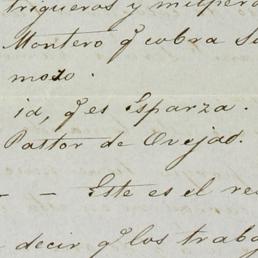 trigueros y milpero
Montero q̃ cobra Se
mozo.
ia, q̃ es Esparza.
Pastor de Ovejas.
- - Este es el re
decir q̃ los traba